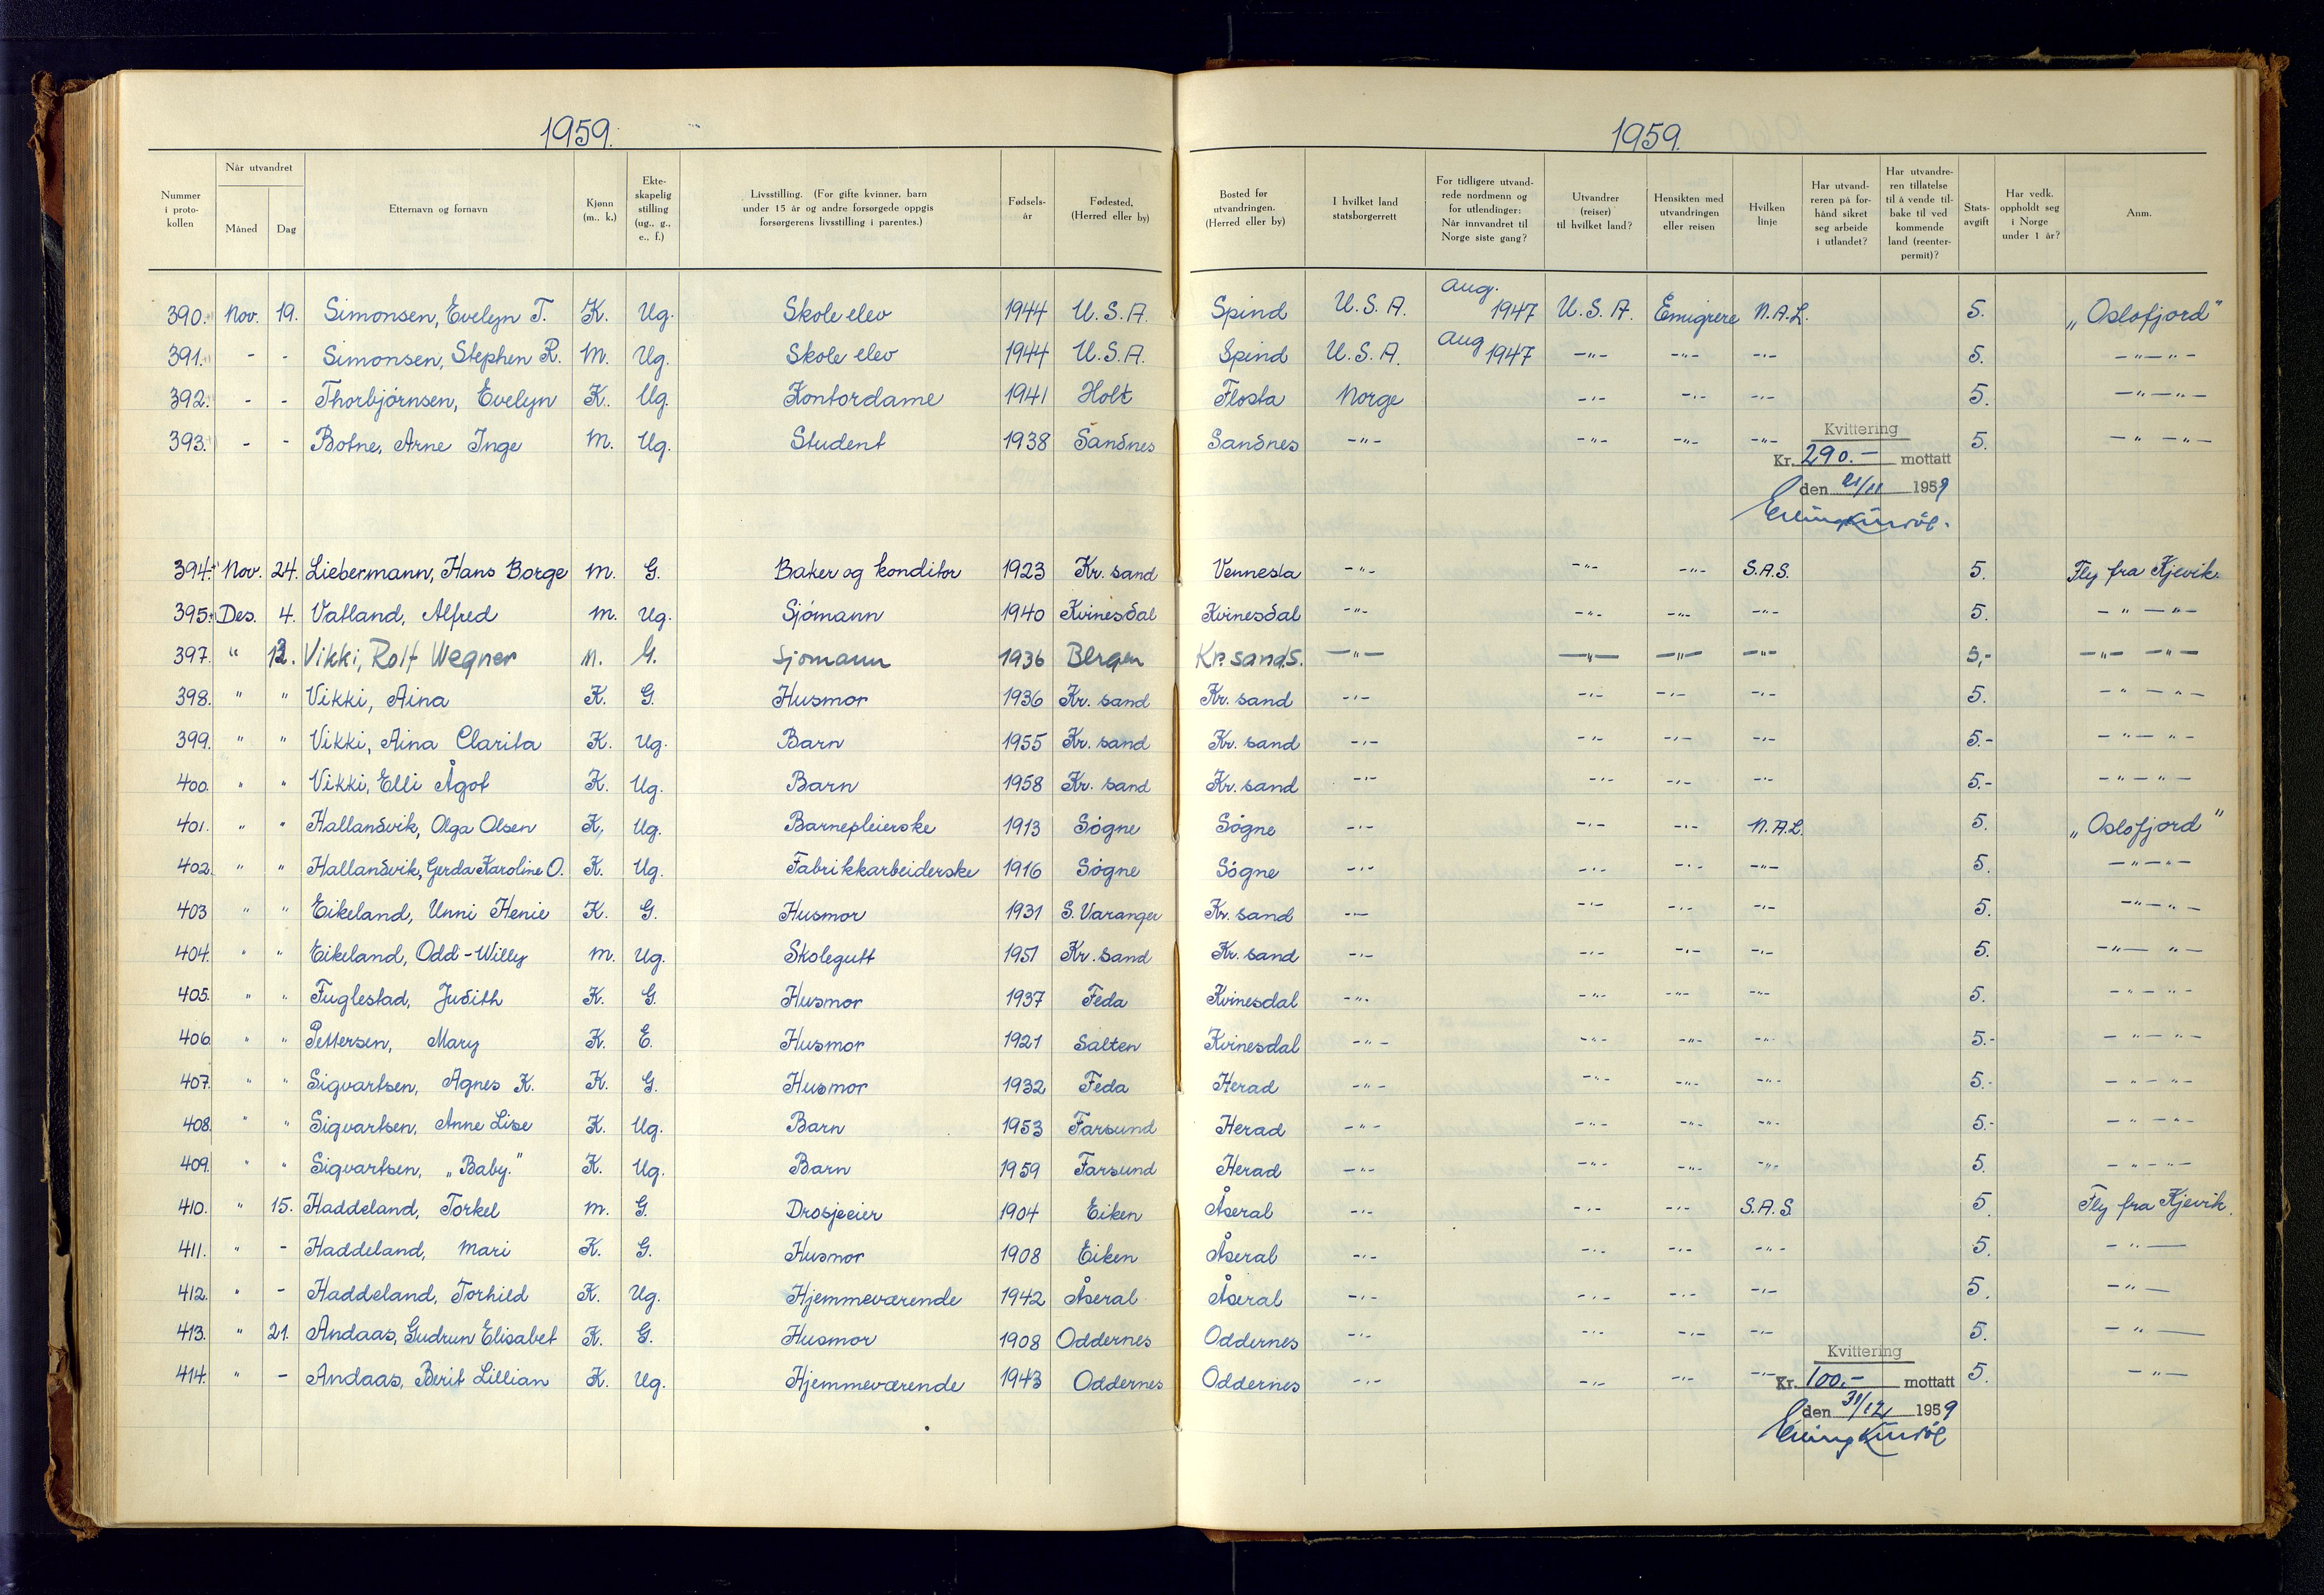 1959.
1959.
Nummer i proto-kollen | Når utvandret Måned Dag | Etternavn og fornavn | Kjønn (m., k.) | Ekte-skapelig stilling (ug., g., e., f.) | Livsstilling. (For gifte kvinner, barn under 15 år og andre forsørgede oppgis forsørgerens livsstilling i parentes.) | Fødsels-år | Fødested. (Herred eller by) | Bosted før utvandringen. (Herred eller by) | I hvilket land statsborgerrett | For tidligere utvand-rede nordmenn og for utlendinger: Når innvandret til Norge siste gang? | Utvandrer (reiser) til hvilket land? | Hensikten med utvandringen eller reisen | Hvilken linje | Har utvand-reren på for-hånd sikret seg arbeide i utlandet? | Har utvandre-ren tillatelse til å vende til-bake til ved kommende land (reenter-permit)? | Stats-avgift | Har vedk. oppholdt seg i Norge under 1 år? | Anm.
390. Nov. 19. Simonsen, Evelyn T. K. Ug. Skole elev 1944 U.S.A. Spind U.S.A. Aug. 1947 U.S.A. Emigrere N.A.L. 5. „Oslofjord"
391. - - Simonsen, Stephen R. M. Ug. Skole elev 1944 U.S.A. Spind U.S.A. Aug 1947 -"- -"- -"- 5. -"-"-
392. - - Thorbjørnsen, Evelyn K. Ug. Kontordame 1941 Holt Flosta Norge -"- -"- -"- 5. -"-"-
393. - - Botne, Arne Inge M. Ug. Student 1938 Sandnes Sandnes -"- -"- -"- -"- 5. -"-"-
Kvittering
Kr. 290.- mottatt
den 21/11 1959
394. Nov. 24. Liebermann, Hans Borge M. G. Baker og konditor 1923 Kr. sand Vennesla -"- -"- -"- S.A.S. 5. Fly fra Kjevik.
395. Des. 4. Vatland, Alfred M. Ug. Sjømann 1940 Kvinesdal Kvinesdal -"- -"- -"- -"- 5. -"-"-
397. " 12. Vikki, Rolf Wegner M. G. Sjømann 1936 Bergen Kr. sand S. -"- -"- -"- -"- 5,- -"-"-
398. " " Vikki, Aina K. G. Husmor 1936 Kr. sand Kr. sand -"- -"- -"- -"- 5. -"-"-
399. " " Vikki, Aina Clarita K. Ug. Barn 1955 Kr. sand Kr. sand -"- -"- -"- -"- 5.- -"-"-
400. " " Vikki, Elli Ågot K. Ug. Barn 1958 Kr. sand Kr. sand -"- -"- -"- -"- 5.- -"-"-
401. " " Hallandvik, Olga Olsen K. Ug. Barnepleierske 1913 Søgne Søgne -"- -"- -"- N.A.L. 5. „Oslofjord"
402. " " Hallandvik, Gerda Karoline O. K. Ug. Fabrikkarbeiderske 1916 Søgne Søgne -"- -"- -"- -"- 5. -"-"-
403 " " Eikeland, Unni Henie K. G. Husmor 1931 S. Varanger Kr. sand -"- -"- -"- -"- 5. -"-"-
404. " " Eikeland, Odd-Willy M. Ug. Skolegutt 1951 Kr. sand Kr. sand -"- -"- -"- -"- 5. -"-"-
405. " " Fuglestad, Judith K. G. Husmor 1937 Feda Kvinesdal -"- -"- -"- -"- 5. -"-"-
406 " " Pettersen, Mary K. E. Husmor 1921 Salten Kvinesdal -"- -"- -"- -"- 5.- -"-"-
407. " " Sigvartsen, Agnes K. K. G. Husmor 1932 Feda Herad -"- -"- -"- -"- 5.- -"-"-
408. " " Sigvartsen, Anne Lise K. Ug. Barn 1953 Farsund Herad -"- -"- -"- -"- 5.- -"-"-
409. " " Sigvartsen, „Baby." K. Ug. Barn 1959 Farsund Herad -"- -"- -"- -"- 5. -"-"-
410. " 15. Haddeland, Torkel M. G. Drosjeeier 1904 Eiken Åseral -"- -"- -"- S.A.S. 5. Fly fra Kjevik.
411. " - Haddeland, Mari K. G. Husmor 1908 Eiken Åseral -"- -"- -"- -"- 5. -"-
412. " - Haddeland, Torhild K. Ug. Hjemmeværende 1942 Åseral Åseral -"- -"- -"- -"- 5. -"-
413. " 21. Andaas, Gudrun Elisabet K. G. Husmor 1908 Oddernes Oddernes -"- -"- -"- -"- 5. -"-
414. " - Andaas, Berit Lillian K. Ug. Hjemmeværende 1943 Oddernes Oddernes -"- -"- -"- -"- 5. -"-
Kvittering
Kr. 100.- mottatt
den 31/12 1959